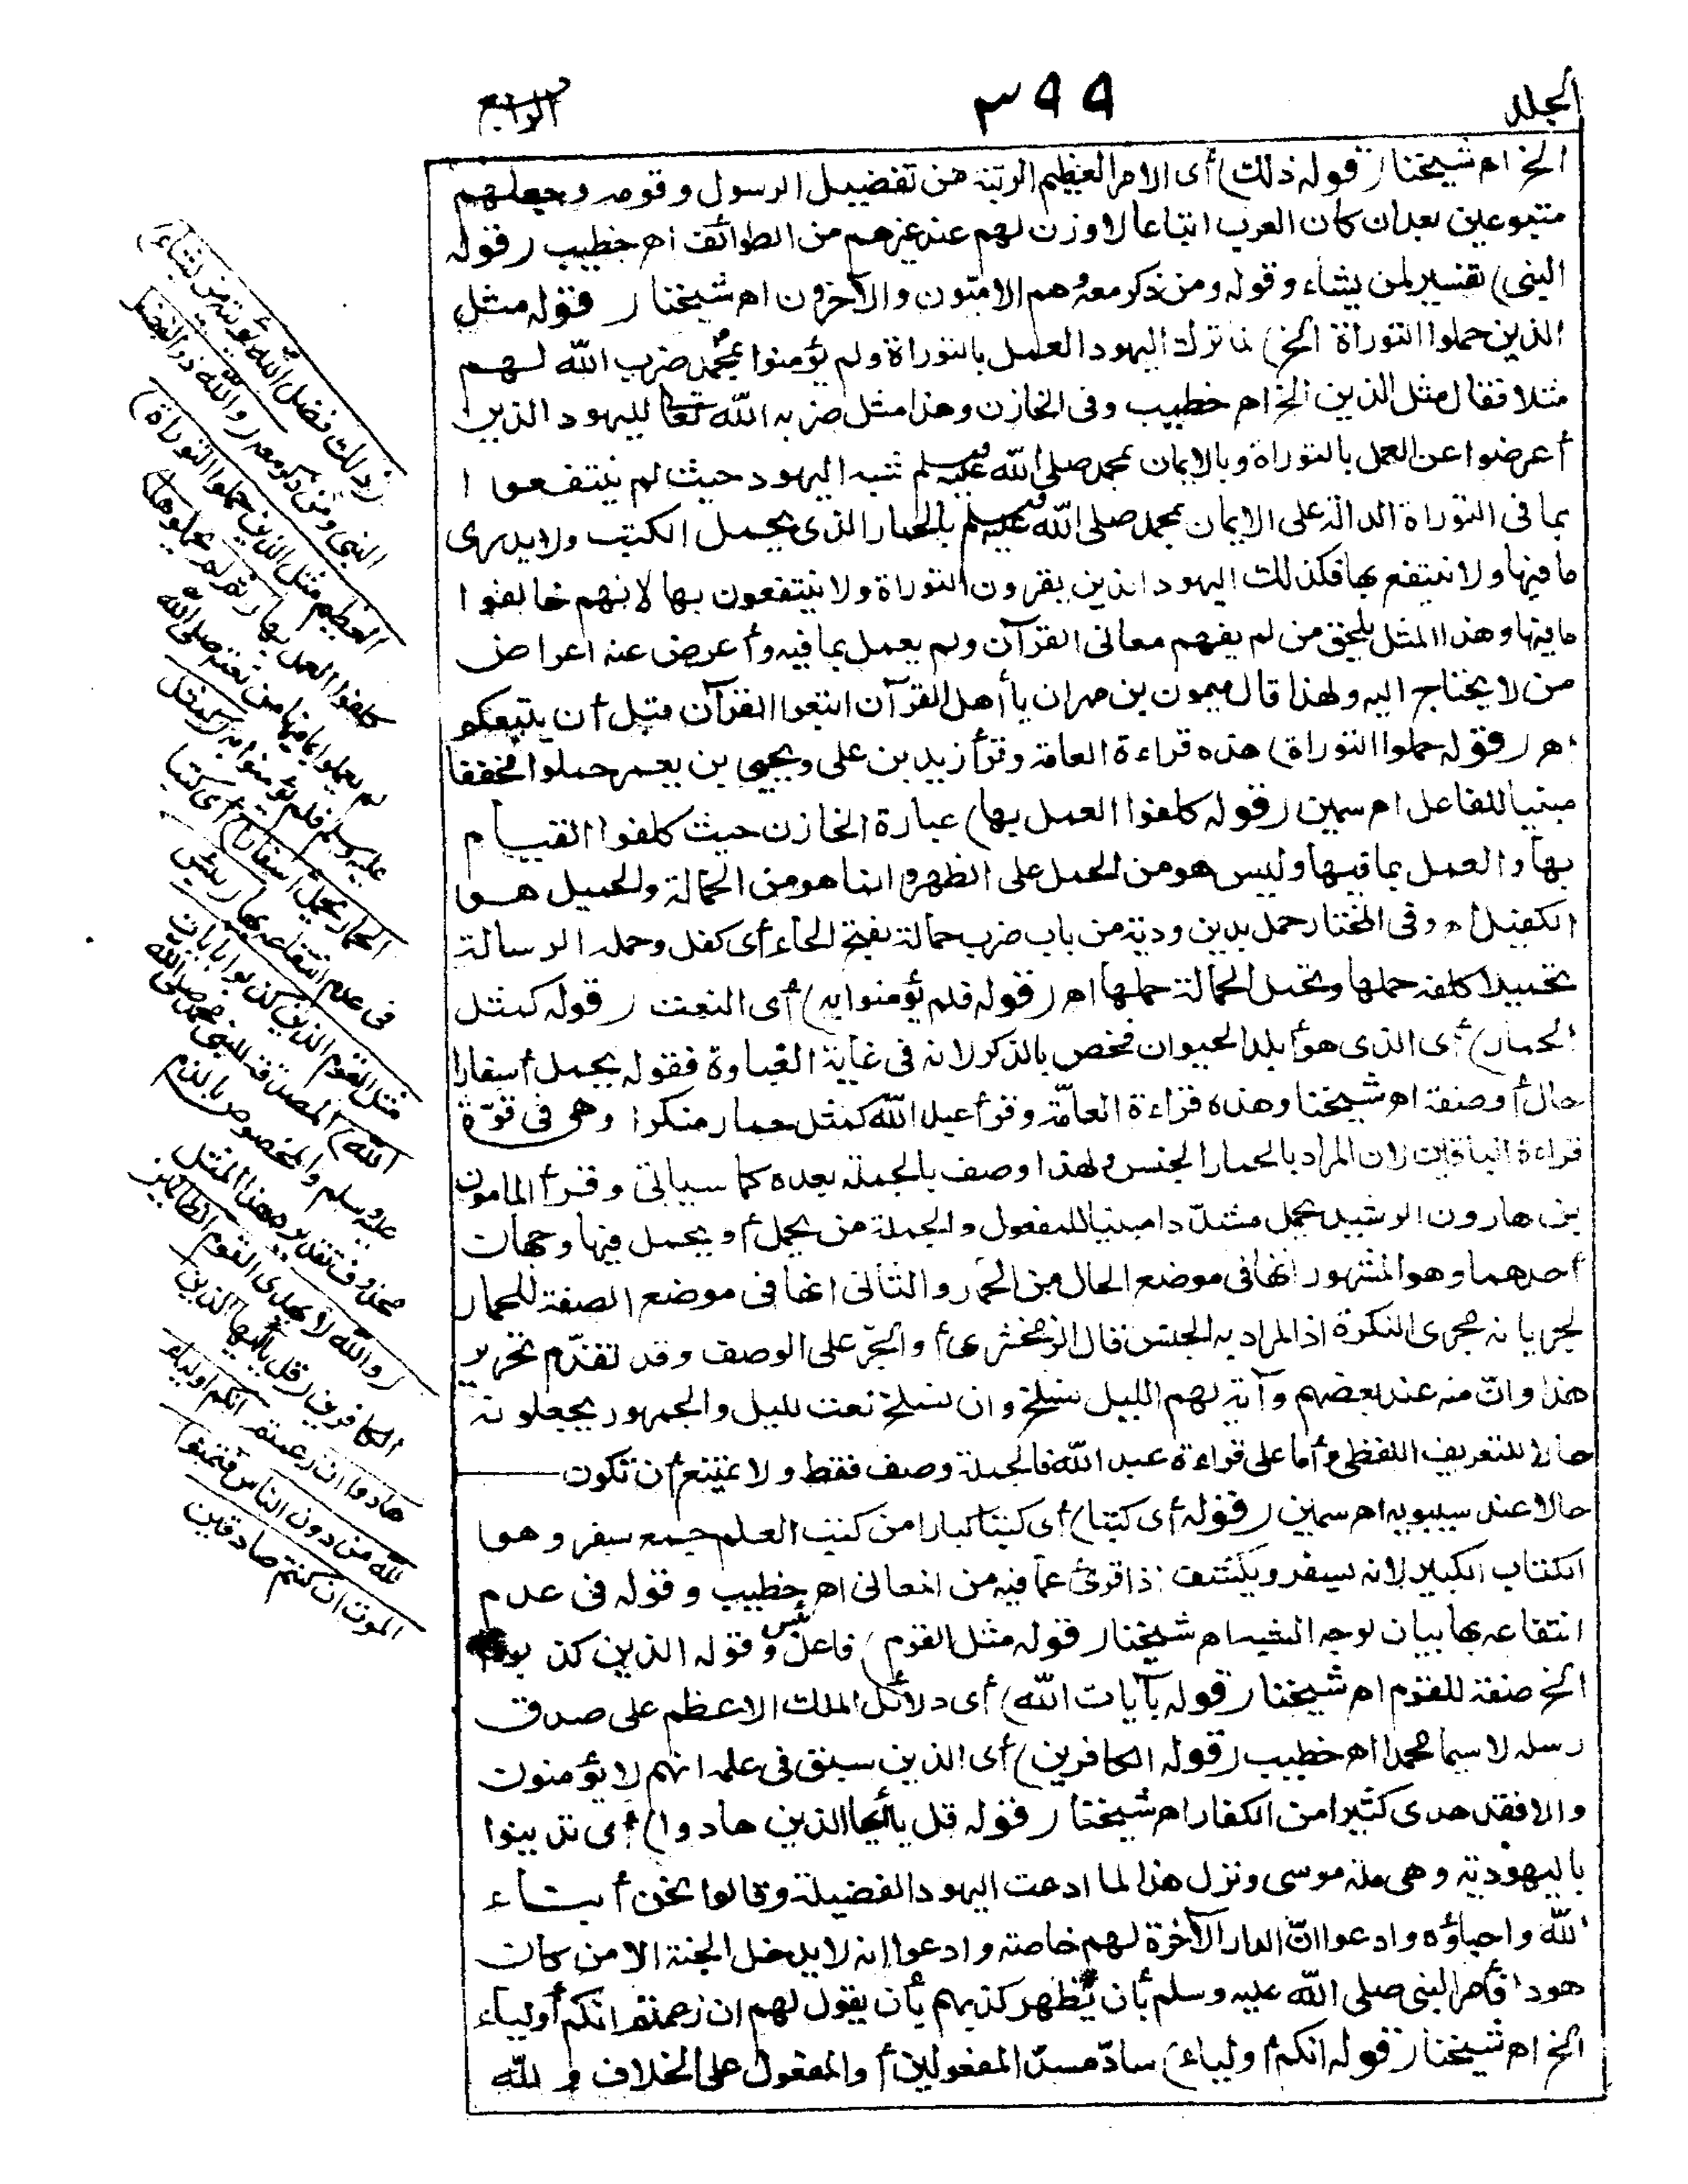 المجلد
٣٩٩
الرابع
الخ اه شيخنا (قوله ذلك) أى الامر العظيم الرتبة من تفضيل الرسول وقومه وجعلهم
متبوعين بعد ان كان العرب اتباعا لا وزن لهم عند غيرهم من الطوائف اه خطيب (قوله
النبى) تفسير لمن يشاء وقوله ومن ذكر معه وهم الاميّون والآخرون اه شيخنا (قوله مثل
الذين حملوا التوراة الخ) لما ترك اليهود العمل بالتوراة ولم يؤمنوا بمحمد ضرب الله لهم
مثلا فقال مثل الذين الخ اه خطيب وفى الخازن وهذا مثل ضربه الله تعالى لليهود الذين
أعرضوا عن العمل بالتوراة وبالايمان بمحمد صلى الله عليه وسلم شبه اليهود حيث لم ينتفعوا
بما فى التوراة الدالة على الايمان بمحمد صلى الله عليه وسلم بالحمار الذى يحمل الكتب ولا يدرى
ما فيها ولا ينتفع بها فكذلك اليهود الذين يقرون التوراة ولا ينتفعون بها لانهم خالفوا
ما فيها وهذا المثل يلحق من لم يفهم معانى القرآن ولم يعمل بما فيه وأعرض عنه اعراض
من لا يحتاج اليه ولهذا قال ميمون بن مهران يا أهل القرآن اتبعوا القرآن قبل أن يتبعكم
اه (قوله حملوا التوراة) هذه قراءة العامة وقرأ زيد بن على ويحيى بن يعمر حملوا مخففا
مبنيا للفاعل اه سمين (قوله كلفوا العمل بها) عبارة الخازن حيث كلفوا القيام
بها والعمل بما فيها وليس هو من الحمل على الظهر وانما هو من الحمالة والحميل هو
الكفيل اه وفى المختار حمل بدين ودية من باب ضرب حمالة بفتح الحاء أى كفل وحمله الرسالة
تحميلا كلفه حملها وتحمل الحمالة حملها اه (قوله فلم يؤمنوا به) أى النعت (قوله كمثل
الحمار) أى الذى هو أبلد الحيوان فخص بالذكر لانه فى غاية الغباوة فقوله يحمل أسفارا
حال أو صفة اه شيخنا وهذه قراءة العامّة وقرأ عبد الله كمثل حمار منكرا وهى فى قوّة
قراءة الباقين لان المراد بالحمار الجنس ولهذا وصف بالجملة بعده كما سيأتى وقرأ المأمون
بن هارون الرشيد يحمل مشدّدا مبنيا للمفعول والجملة من يحمل أو يحمل فيها وجهان
أحدهما وهو المشهور انها فى موضع الحال من الحمار والثانى انها فى موضع الصفة للحمار
لجريانه مجرى النكرة اذ المراد به الجنس قال الزمخشرى أو الجرّ على الوصف وقد تقدّم تحرير
هذا وانّ منه عند بعضهم وآية لهم الليل نسلخ وان نسلخ نعت لليل والجمهور يجعلونه
حالا للتعريف اللفظى وأما على قراءة عبد الله فالجملة وصف فقط ولا يمتنع أن تكون
حالا عند سيبويه اه سمين (قوله أى كتبا) أى كتبا كبارا من كتب العلم جمع سفر وهو
الكتاب الكبير لانه يسفر ويكشف اذا قرئ عما فيه من المعانى اه خطيب وقوله فى عدم
انتفاعه بها بيان لوجه الشبه اه شيخنا (قوله مثل القوم) فاعل بئس وقوله الذين كذبوا
الخ صفة للقوم اه شيخنا (قوله بآيات الله) أى دلائل الملك الاعظم على صدق
رسله لا سيما محمدا اه خطيب (قوله الكافرين) أى الذين سبق فى علمه انهم لا يؤمنون
والا فقد هدى كثيرا من الكفار اه شيخنا (قوله قل يا أيها الذين هادوا) أى تدينوا
باليهودية وهى ملة موسى ونزل هذا لما ادعت اليهود الفضيلة وقالوا نحن أبناء
الله واحباؤه وادعوا انّ الدار الآخرة لهم خاصة وادعوا انه لا يدخل الجنة الا من كان
هودا فأمر النبى صلى الله عليه وسلم بأن يظهر كذبهم بأن يقول لهم ان زعمتم انكم أولياء
الخ اه شيخنا (قوله انكم أولياء) سادّ مسدّ المفعولين أو المفعول على الخلاف و لله
(ذلك فضل الله يؤتيه من يشاء)
النبى ومن ذكر معه (والله ذو الفضل
العظيم مثل الذين حملوا التوراة)
كلفوا العمل بها (ثم لم يحملوها)
لم يعملوا بما فيها من نعته صلى الله
عليه وسلم فلم يؤمنوا به (كمثل
الحمار يحمل أسفارا) أى كتبا
فى عدم انتفاعه بها (بئس
مثل القوم الذين كذبوا بآيات
الله) المصدقة للنبى محمد صلى الله
عليه وسلم والمخصوص بالذم
محذوف تقديره هذا المثل
(والله لا يهدى القوم الظالمين)
الكافرين (قل يا أيها الذين
هادوا ان زعمتم انكم أولياء
لله من دون الناس فتمنوا
الموت ان كنتم صادقين